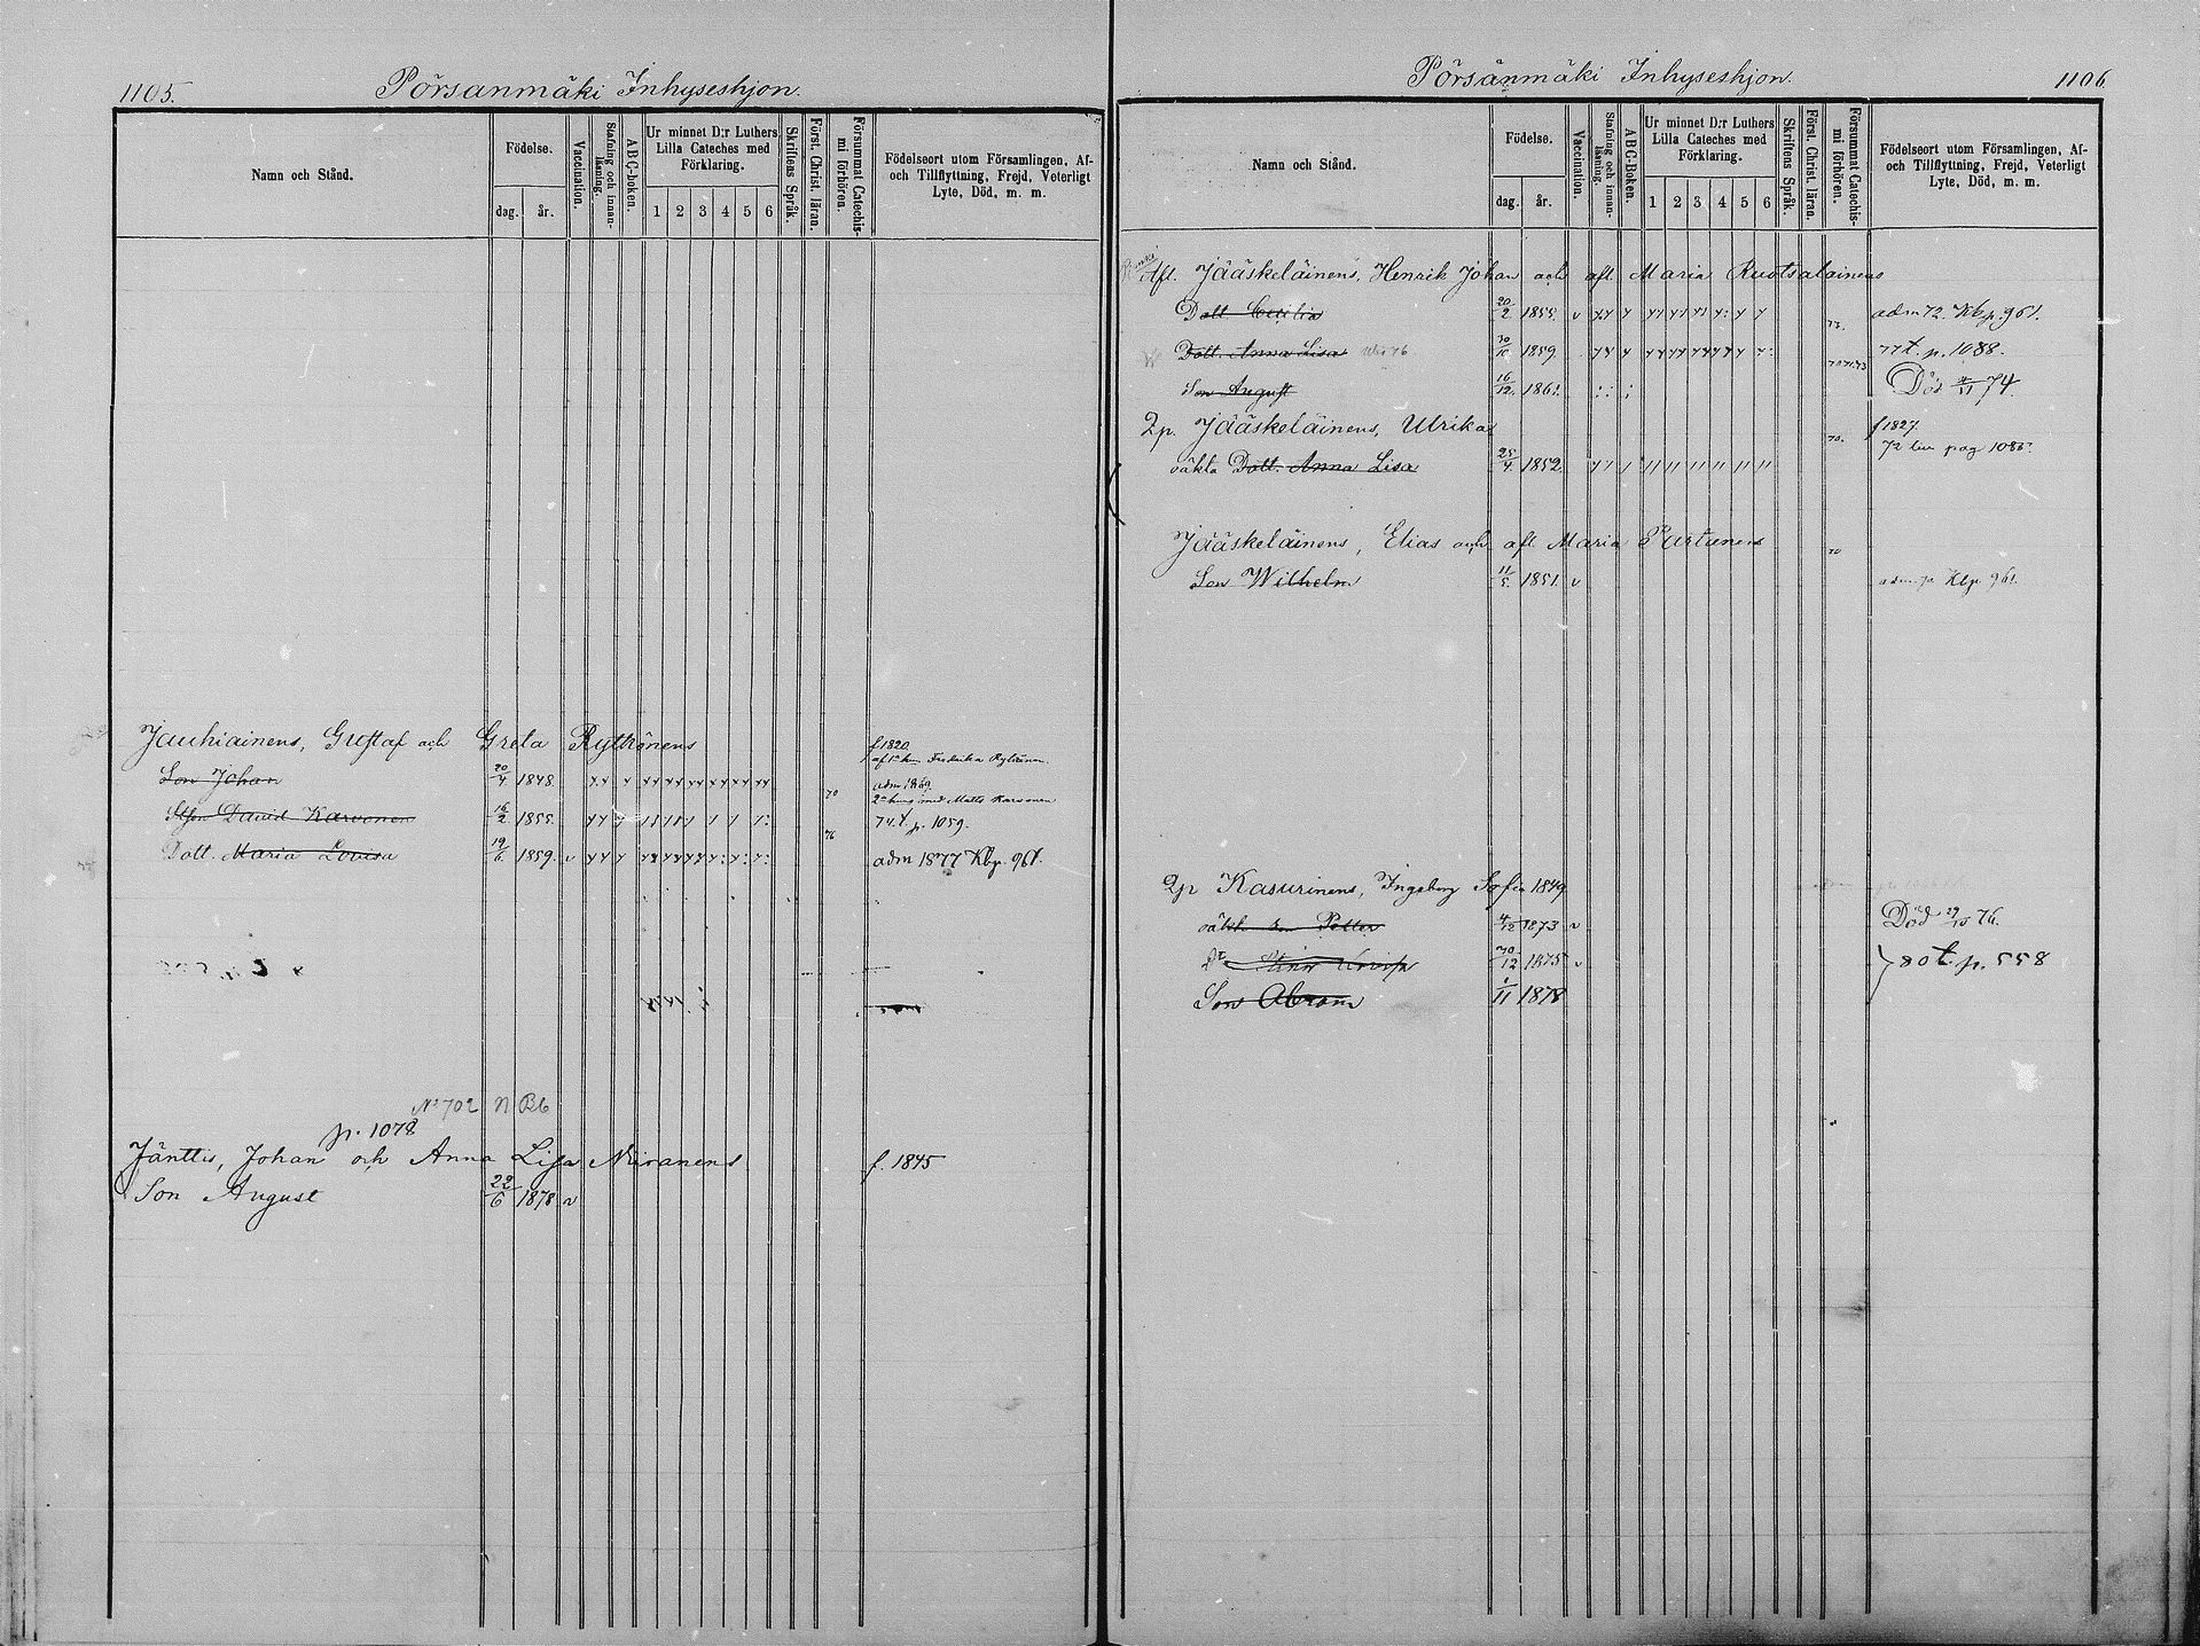 1105.
Pörsänmäki Inhyseshjon.
Namn och Stånd.
Födelse.
dag.
år.
Vaccination.
Stafning och innanläsning.
ABC-boken.
Ur minnet D:r Luthers Lilla Cateches med Förklaring.
1 2 3 4 5 6
Skriftens Språk.
Först. Christ. läran.
Försummat Catechismi förhören.
Födelseort utom Församlingen, Af- och Tillflyttning, Frejd, Veterligt Lyte, Död, m. m.
Jauhiainens, Gustaf och Greta Rytkönens f 1820.
Son Johan 20/4 1848 70 adm 1869.
Stson David Karvonen 16/2 1855. 76 74.t. p. 1059.
Dott. Maria Lovisa 19/6 1859. v adm 1877 Kbp. 961.
No 702
p. 1078
Jänttis, Johan och Anna Lisa Niiranens f. 1845
Son August 22/6 1878 v
Pörsänmäki Inhyseshjon.
1106
Namn och Stånd.
Födelse.
dag.
år.
Vaccination.
Stafning och innanläsning.
ABC-Boken.
Ur minnet D:r Luthers Lilla Cateches med Förklaring.
1 2 3 4 5 6
Skriftens Språk.
Först. Christ. läran.
Försummat Catechismi förhören.
Födelseort utom Församlingen, Af- och Tillflyttning, Frejd, Veterligt Lyte, Död, m. m.
Afl. Jääskeläinens, Henrik Johan och afl Maria Ruotsalainens
Dott. Cecilia 20/2 1855. v adm 72. Kbp. 961.
Dott. Anna Lisa 30/10 1859 77t. p. 1088.
Son August 16/12. 1861. Död 74.
Qp. Jääskeläinens, Ulrika 70. f 1827.
oäkta Dott. Anna Lisa 25/4. 1852.
Jääskeläinens, Elias och afl. Maria Partanens 70
Son Wilhelm 11/5. 1851. v Kbp 961.
Qp Kasurinens, Ingeborg Sofia 1849
oäkt. son Petter 4/12 1873 v Död 29/10 76.
Dt Stina Lovisa 30/12 1875 v 80 t. p. 558
Son Abram 1/11 1878